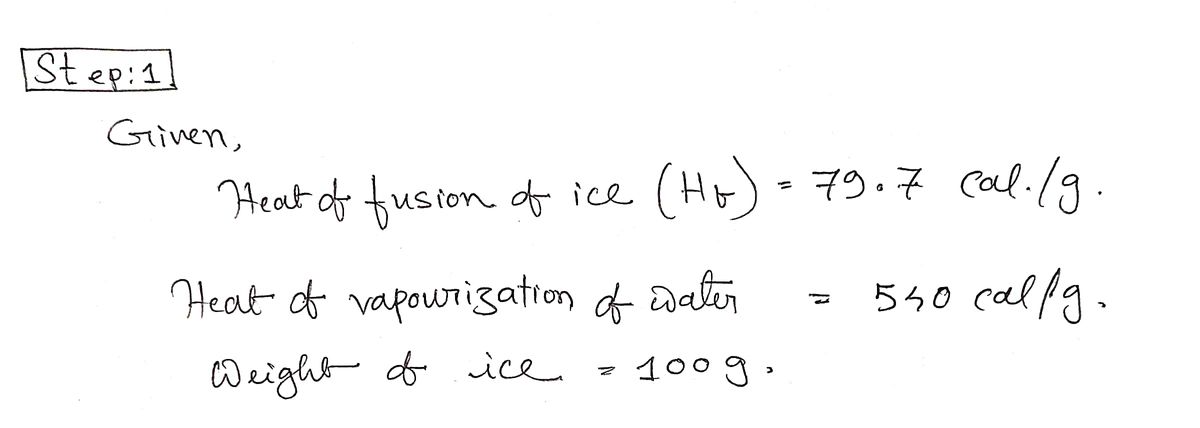 Step:1
Given,
Heat of fusion of ice (Hf) = 79.7 cal./g.
Heat of vapourization of water = 540 cal/g.
Weight of ice = 100 g.